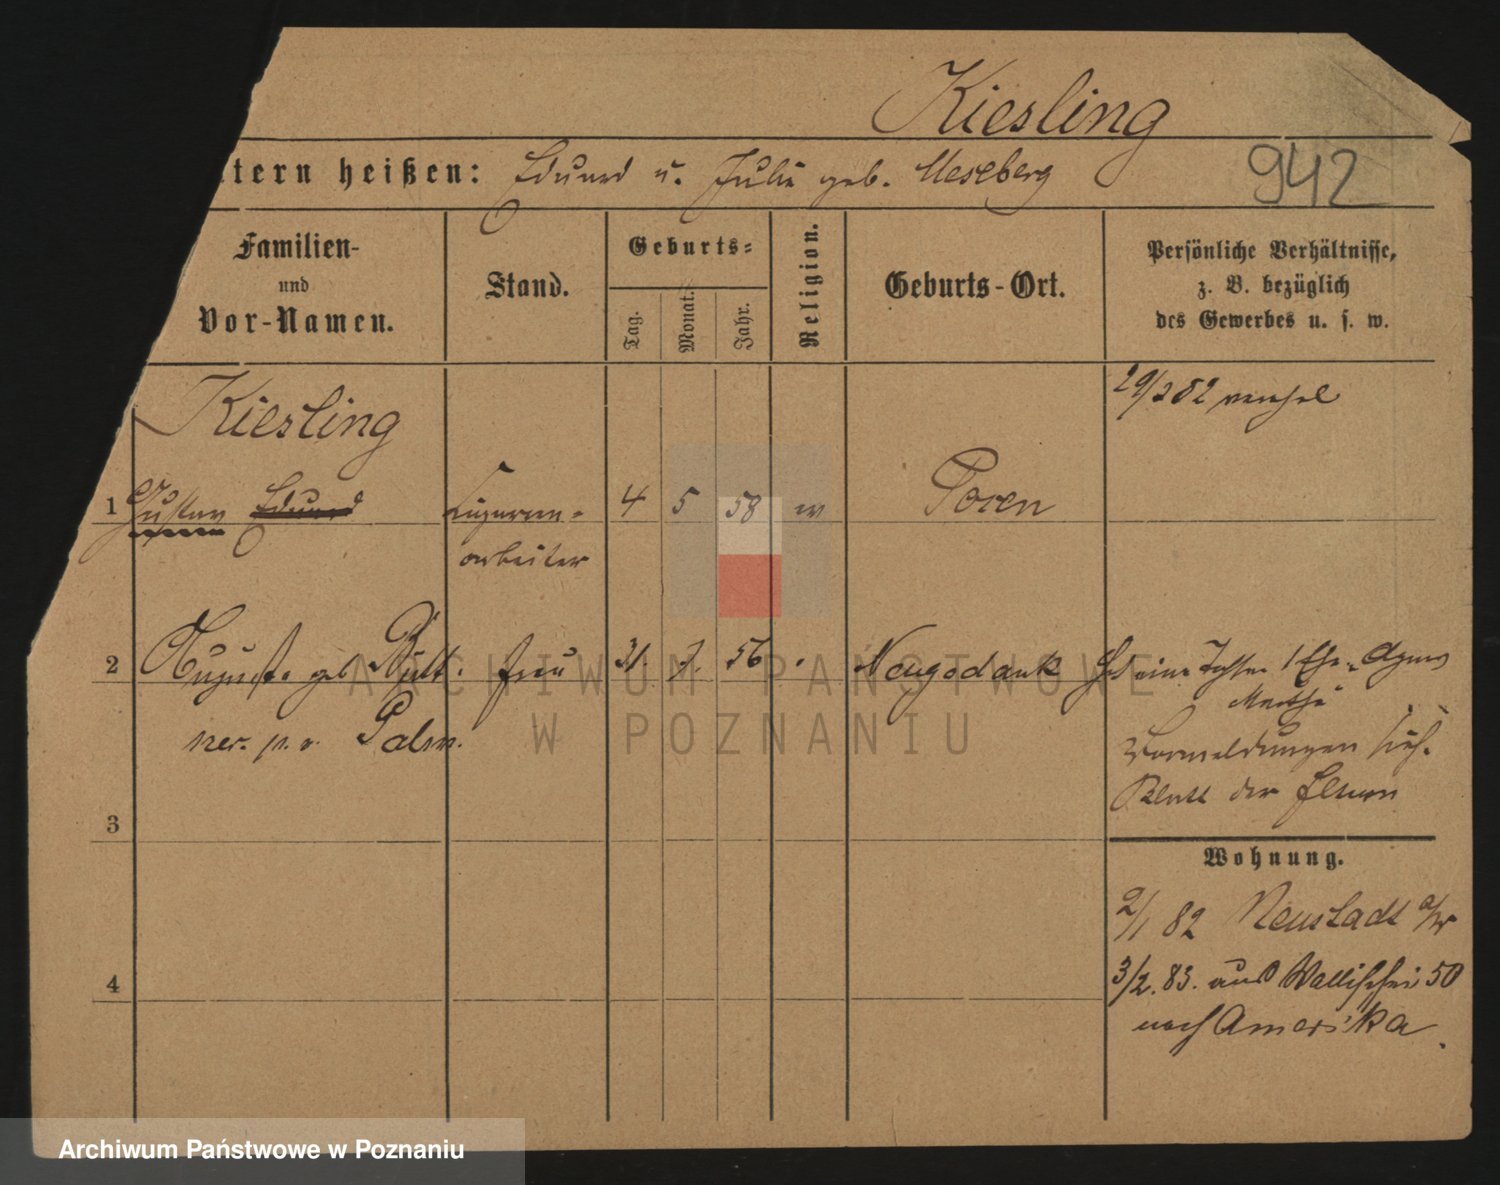 Kiesling
942
tern heißen: Eduard u. Julie geb. Meseberg
Familien-
und
Vor-Namen.
Stand.
Geburts-
Tag.
Monat.
Jahr.
Religion.
Geburts-Ort.
Persönliche Verhältnisse,
z. B. bezüglich
des Gewerbes u. s. w.
Kiesling
1 Gustav Eduard
Cigarren-
arbeiter
4 5 58 ev
Posen
2 Auguste geb.
Frau 21. 7. 56
Neugodank
verw. Palm.
Hat eine Tochter 1 Ehe Agnes
Martha
Vormeldungen sieh.
Blatt der Eltern
3
Wohnung.
2/1 82 Neustadt a/W
4
3/2. 83. aus Wallischei 50
nach Amerika
ARCHIWUM PAŃSTWOWE
W POZNANIU
Archiwum Państwowe w Poznaniu